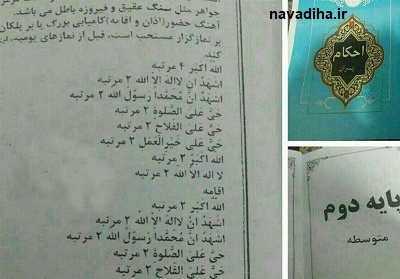 navadiha.ir
جواهر مثل سنگ عقیق و فیروزه باطل می باشد.
آهنگ حضور(اذان و اقامه)کامیابی بزرگ با بر پلکان
بر نمازگزار مستحب است، قبل از نمازهای یومیه،
کند.
الله اکبر ۴ مرتبه
اشهد ان لااله الا الله ۲ مرتبه
اشهد ان محمدا رسول الله ۲ مرتبه
حی علی الصلوة ۲ مرتبه
حی علی الفلاح ۲ مرتبه
حی علی خیرالعمل ۲ مرتبه
الله اکبر ۲ مرتبه
لا اله الا الله ۲ مرتبه
اقامه
الله اکبر ۲ مرتبه
اشهد ان لااله الا الله ۲ مرتبه
اشهد ان محمدا رسول الله ۲ مرتبه
حی علی الصلوة ۲ مرتبه
حی علی الفلاح ۲ مرتبه
احکام
پسران
پایه دوم
متوسطه